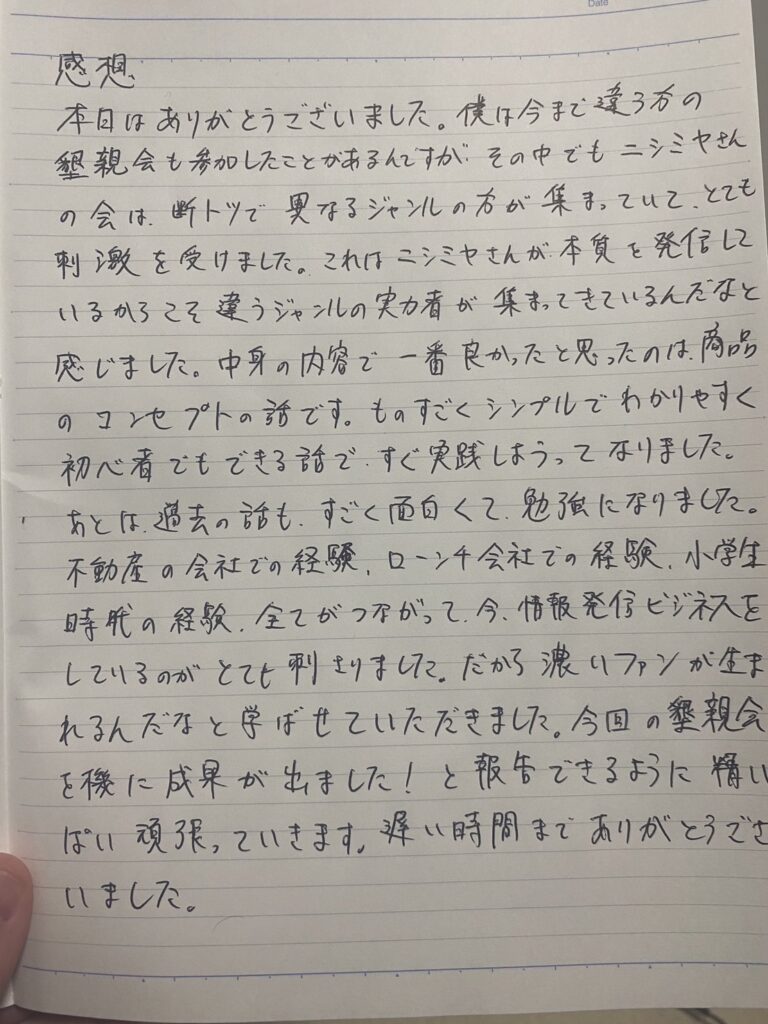 Date
感想
本日はありがとうございました。僕は今まで違う方の
懇親会も参加したことがあるんですが、その中でもニシミヤさん
の会は、断トツで異なるジャンルの方が集まっていて、とても
刺激を受けました。これはニシミヤさんが本質を発信して
いるからこそ違うジャンルの実力者が集まってきているんだなと
感じました。中身の内容で一番良かったと思ったのは、商品
のコンセプトの話です。ものすごくシンプルでわかりやすく
初心者でもできる話で、すぐ実践しようってなりました。
あとは、過去の話も、すごく面白くて、勉強になりました。
不動産の会社での経験、ローンチ会社での経験、小学生
時代の経験、全てがつながって、今、情報発信ビジネスを
しているのがとても刺さりました。だから濃いファンが生ま
れるんだなと学ばせていただきました。今回の懇親会
を機に成果が出ました！と報告できるように精い
ぱい頑張っていきます。遅い時間までありがとうござ
いました。